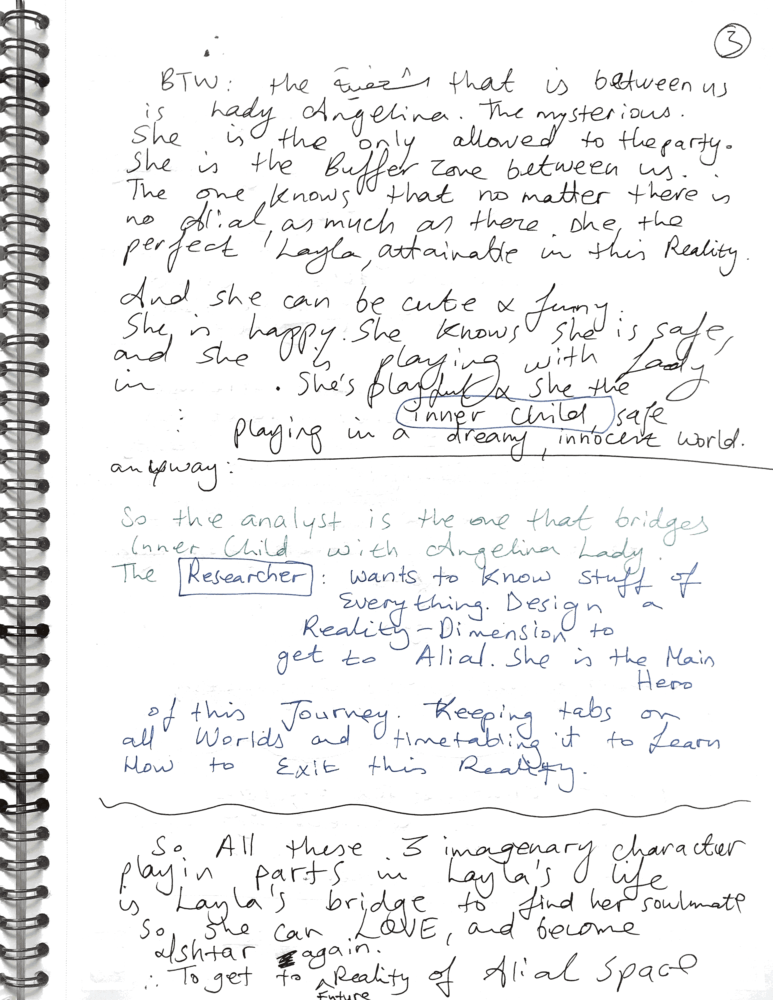 3
BTW: the that is between us
is Lady Angelina. The mysterious.
She is the only allowed to the party.
She is the Buffer zone between us.
The one knows that no matter there is
no Alial, as much as there. She, the
perfect Layla, attainable in this Reality.
And she can be cute & funny.
She is happy. She knows she is safe,
and she is playing with Lady
in . She's playful & she the
inner child, safe
playing in a dreamy, innocent world.
anyway:
So the analyst is the one that bridges
Inner Child with Angelina Lady.
The Researcher: wants to know stuff of
Everything. Design a
Reality-Dimension to
get to Alial. She is the Main
Hero
of this Journey. Keeping tabs on
all Worlds and timetabling it to Learn
How to Exit this Reality.
So All these 3 imagenary character
playin parts in Layla's life
is Layla's bridge to find her soulmate
So, she can LOVE, and become
Ishtar again.
∴ To get to Reality of Alial Space
Future